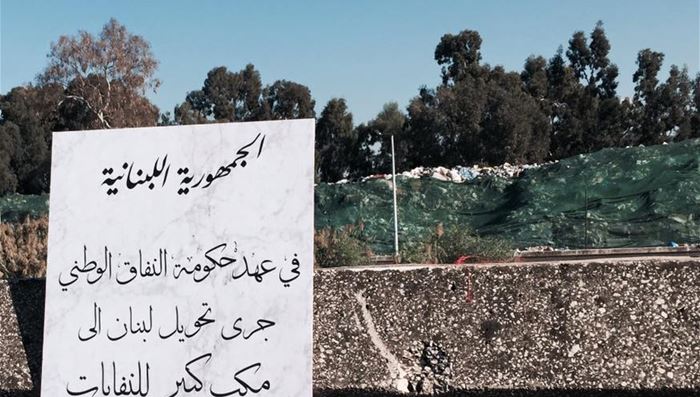 الجمهورية اللبنانية
في عهد حكومة النفاق الوطني
جرى تحويل لبنان الى
مكب كبير للنفايات